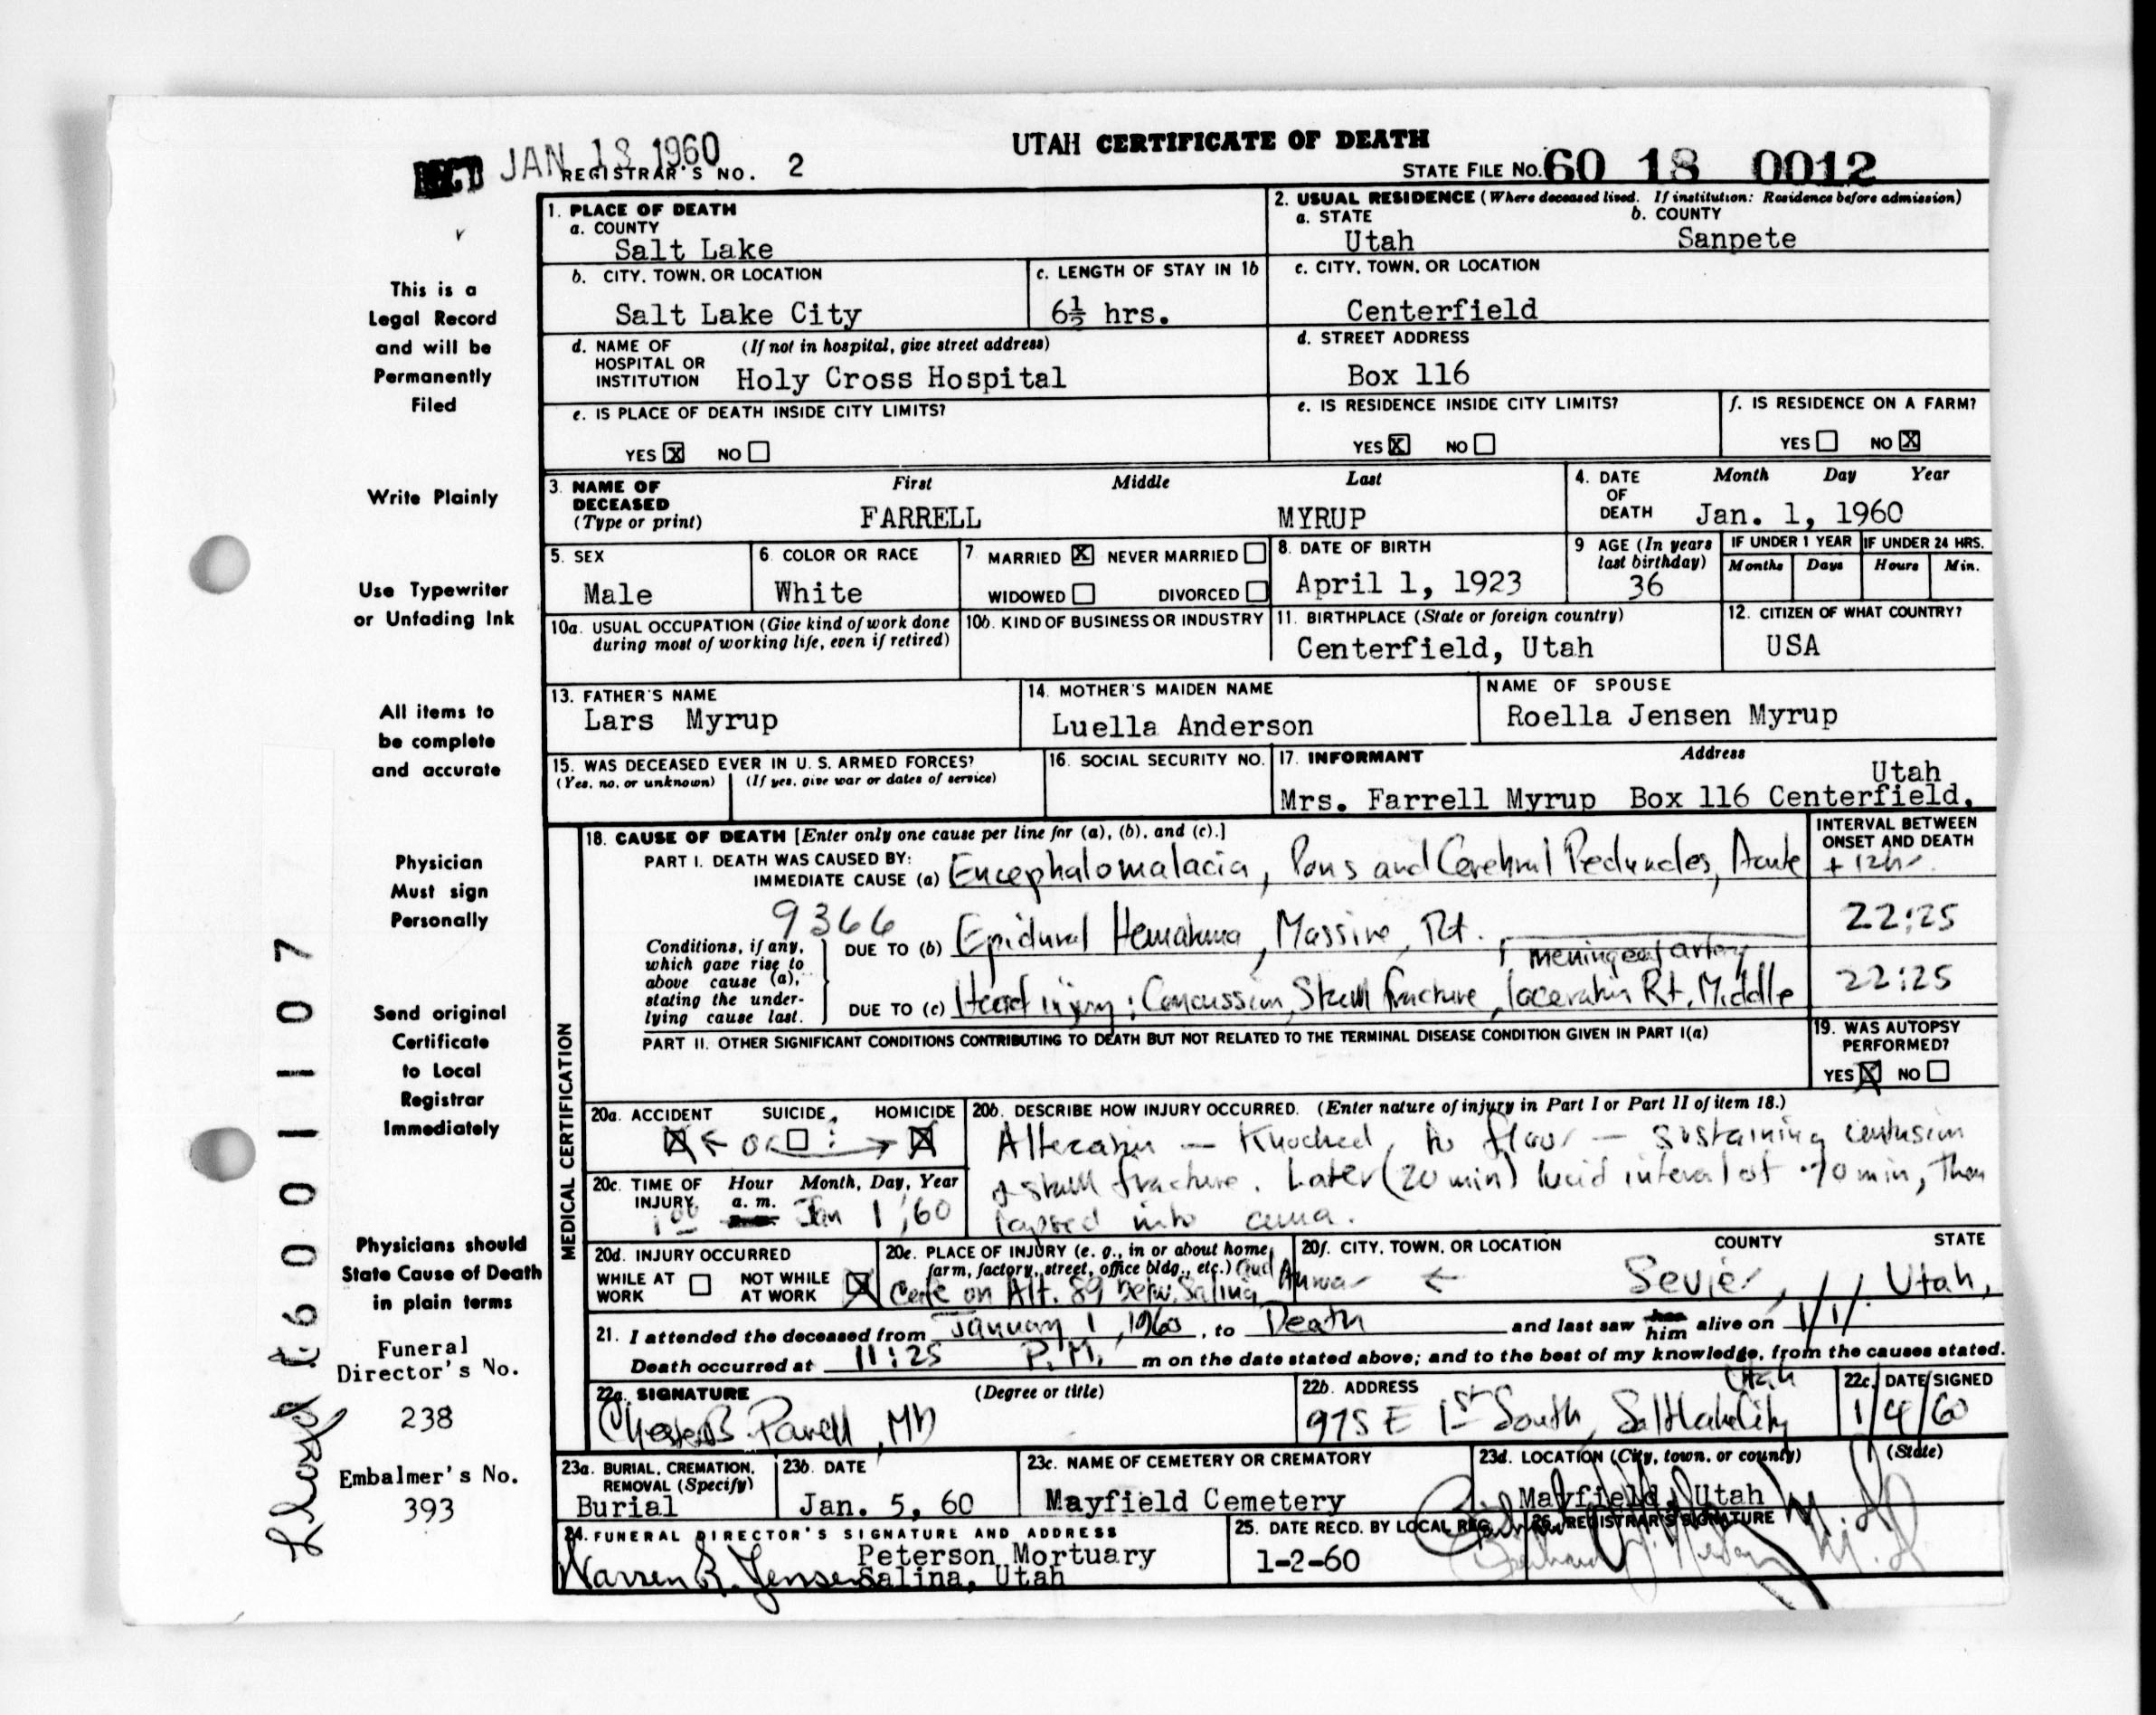 REC'D JAN 13 1960
UTAH CERTIFICATE OF DEATH
REGISTRAR'S NO. 2
STATE FILE NO. 60 18 0012
1. PLACE OF DEATH
a. COUNTY
Salt Lake
2. USUAL RESIDENCE (Where deceased lived. If institution: Residence before admission)
a. STATE b. COUNTY
Utah Sanpete
b. CITY, TOWN, OR LOCATION
Salt Lake City
c. LENGTH OF STAY IN 1b
6½ hrs.
c. CITY, TOWN, OR LOCATION
Centerfield
d. NAME OF HOSPITAL OR INSTITUTION (If not in hospital, give street address)
Holy Cross Hospital
d. STREET ADDRESS
Box 116
e. IS PLACE OF DEATH INSIDE CITY LIMITS?
YES X NO
e. IS RESIDENCE INSIDE CITY LIMITS?
YES X NO
f. IS RESIDENCE ON A FARM?
YES NO X
3. NAME OF DECEASED (Type or print)
First Middle Last
FARRELL MYRUP
4. DATE OF DEATH Month Day Year
Jan. 1, 1960
5. SEX
Male
6. COLOR OR RACE
White
7. MARRIED X NEVER MARRIED
WIDOWED DIVORCED
8. DATE OF BIRTH
April 1, 1923
9 AGE (In years last birthday)
36
IF UNDER 1 YEAR
Months Days
IF UNDER 24 HRS.
Hours Min.
10a. USUAL OCCUPATION (Give kind of work done during most of working life, even if retired)
10b. KIND OF BUSINESS OR INDUSTRY
11. BIRTHPLACE (State or foreign country)
Centerfield, Utah
12. CITIZEN OF WHAT COUNTRY?
USA
13. FATHER'S NAME
Lars Myrup
14. MOTHER'S MAIDEN NAME
Luella Anderson
NAME OF SPOUSE
Roella Jensen Myrup
15. WAS DECEASED EVER IN U. S. ARMED FORCES?
(Yes, no, or unknown) (If yes, give war or dates of service)
16. SOCIAL SECURITY NO.
17. INFORMANT Address
Utah
Mrs. Farrell Myrup Box 116 Centerfield,
MEDICAL CERTIFICATION
18. CAUSE OF DEATH [Enter only one cause per line for (a), (b), and (c).]
INTERVAL BETWEEN ONSET AND DEATH
PART I. DEATH WAS CAUSED BY:
IMMEDIATE CAUSE (a) Encephalomalacia, Pons and Cerebral Peduncles, Acute
± 12 hr.
9366
Conditions, if any, which gave rise to above cause (a), stating the underlying cause last.
DUE TO (b) Epidural Hematoma, Massive, Rt.
22:25
meningeal artery
DUE TO (c) Head injury: Concussion, Skull fracture, laceration Rt. Middle
22:25
PART II. OTHER SIGNIFICANT CONDITIONS CONTRIBUTING TO DEATH BUT NOT RELATED TO THE TERMINAL DISEASE CONDITION GIVEN IN PART I(a)
19. WAS AUTOPSY PERFORMED?
YES X NO
20a. ACCIDENT SUICIDE HOMICIDE
X ← or : → X
20b. DESCRIBE HOW INJURY OCCURRED. (Enter nature of injury in Part I or Part II of item 18.)
Altercation — Knocked to floor — sustaining contusion
& skull fracture. Later (20 min) lucid interval of 70 min, then
lapsed into coma.
20c. TIME OF INJURY Hour Month, Day, Year
1 00 a. m. Jan 1, '60
20d. INJURY OCCURRED
WHILE AT WORK NOT WHILE AT WORK X
20e. PLACE OF INJURY (e. g., in or about home, farm, factory, street, office bldg., etc.)
Cafe on Alt. 89 betw. Salina and
20f. CITY, TOWN, OR LOCATION COUNTY STATE
← Sevier, Utah,
21. I attended the deceased from January 1, 1960, to Death and last saw him alive on 1/1/
Death occurred at 11:25 P.M. m on the date stated above; and to the best of my knowledge, from the causes stated.
22a. SIGNATURE (Degree or title)
Chester B. Powell, MD
22b. ADDRESS
Utah
975 E 1st South, Salt Lake City
22c. DATE SIGNED
1/4/60
23a. BURIAL, CREMATION, REMOVAL (Specify)
Burial
23b. DATE
Jan. 5, 60
23c. NAME OF CEMETERY OR CREMATORY
Mayfield Cemetery
23d. LOCATION (City, town, or county) (State)
Mayfield, Utah
24. FUNERAL DIRECTOR'S SIGNATURE AND ADDRESS
Warren R. Jensen
Peterson Mortuary
Salina, Utah
25. DATE RECD. BY LOCAL REG.
1-2-60
26. REGISTRAR'S SIGNATURE
This is a
Legal Record
and will be
Permanently
Filed
Write Plainly
Use Typewriter
or Unfading Ink
All items to
be complete
and accurate
Physician
Must sign
Personally
Send original
Certificate
to Local
Registrar
Immediately
Physicians should
State Cause of Death
in plain terms
Funeral
Director's No.
238
Embalmer's No.
393
6001107